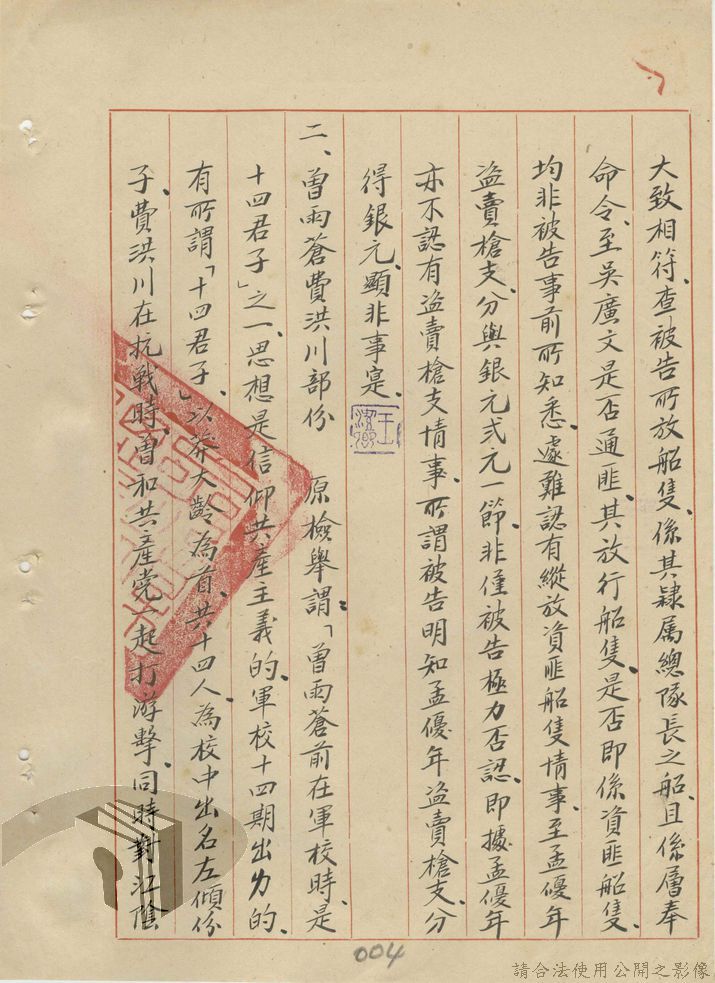 大致相符、查被告所放船隻、係其隸属總隊長之船、且係層奉
命令、至吳廣文是否通匪、其放行船隻、是否即係資匪船隻、
均非被告事前所知悉、遽難認有縱放資匪船隻情事、至孟優年
盜賣槍支、分與銀元弍元一節、非僅被告極力否認、即據孟優年
亦不認有盜賣槍支情事、所謂被告明知孟優年盜賣槍支、分
得銀元、顯非事寔、
二、曾雨蒼費洪川部份　原檢舉謂：「曾雨蒼前在軍校時、是
十四君子」之一、思想是信仰共產主義的、軍校十四期出力的、
有所謂「十四君子、」以莽大齡為首、共十四人、為校中出名左傾份
子、費洪川在抗戰時、曾和共產党一起打游擊、同時對江陰
004
請合法使用公開之影像